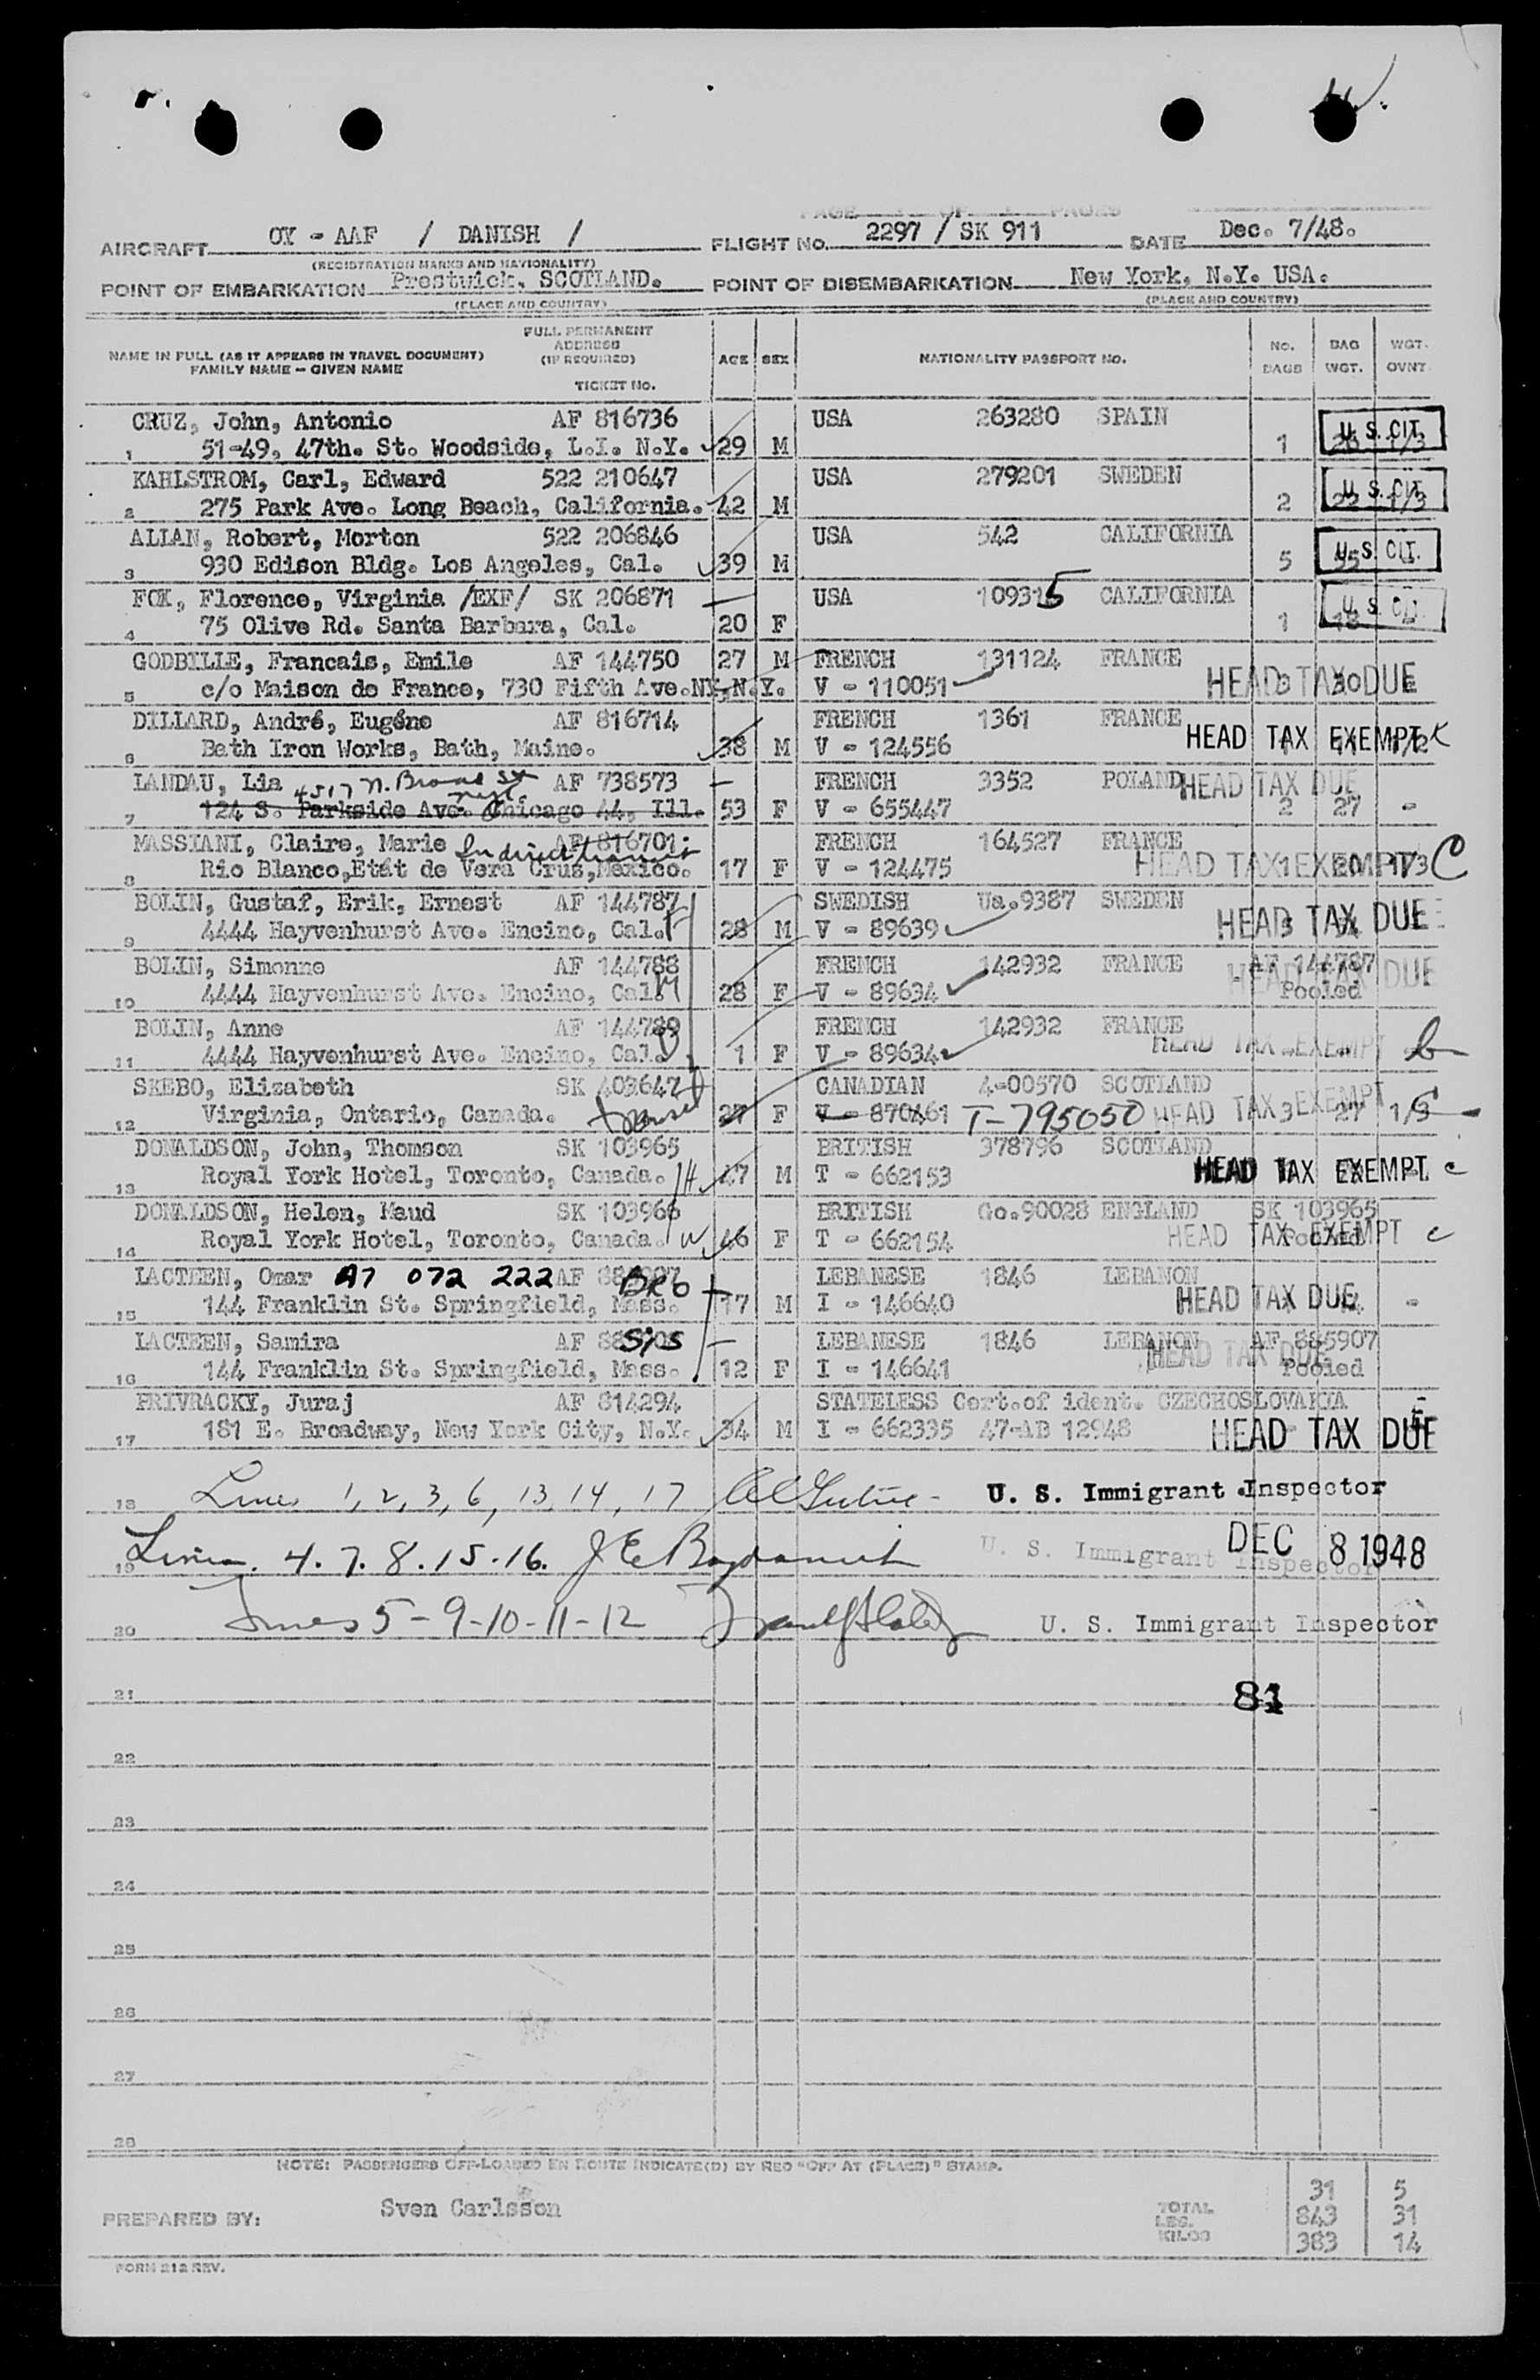 PAGE OF PAGES
AIRCRAFT OY - AAF / DANISH / FLIGHT No. 2297 / SK 911 DATE Dec. 7/48.
(REGISTRATION MARKS AND NATIONALITY)
POINT OF EMBARKATION Prestwick, SCOTLAND. POINT OF DISEMBARKATION New York, N.Y. USA.
(PLACE AND COUNTRY) (PLACE AND COUNTRY)
NAME IN FULL (AS IT APPEARS IN TRAVEL DOCUMENT) FAMILY NAME - GIVEN NAME FULL PERMANENT ADDRESS (IF REQUIRED) TICKET No. AGE SEX NATIONALITY PASSPORT NO. No. BAGS BAG WGT. WGT. OVNT
CRUZ, John, Antonio AF 816736 USA 263280 SPAIN U. S. CIT.
1 51-49, 47th. St. Woodside, L.I. N.Y. 29 M 1
KAHLSTROM, Carl, Edward 522 210647 USA 279201 SWEDEN U. S. CIT.
2 275 Park Ave. Long Beach, California. 42 M 2
ALLAN, Robert, Morton 522 206846 USA 542 CALIFORNIA U. S. CIT.
3 930 Edison Bldg. Los Angeles, Cal. 39 M 5
FOX, Florence, Virginia /EXF/ SK 206871 USA 109315 CALIFORNIA U. S. CIT.
4 75 Olive Rd. Santa Barbara, Cal. 20 F 1 18
GODBILLE, Francais, Emile AF 144750 27 M FRENCH 131124 FRANCE
5 c/o Maison de France, 730 Fifth Ave.NY,N.Y. V - 110051 HEAD TAX DUE
DILLARD, André, Eugéne AF 816714 FRENCH 1361 FRANCE
6 Bath Iron Works, Bath, Maine. 38 M V - 124556 HEAD TAX EXEMPT
LANDAU, Lia 4517 N. Broad St AF 738573 FRENCH 3352 POLAND HEAD TAX DUE
7 124 S. Parkside Ave. Chicago 44, Ill. 53 F V - 655447 2 27 -
MASSIANI, Claire, Marie In direct transit AF 816701 FRENCH 164527 FRANCE
8 Rio Blanco,Etát de Vera Cruz,Mexico. 17 F V - 124475 HEAD TAX EXEMPT C
BOLIN, Gustaf, Erik, Ernest AF 144787 SWEDISH Ua.9387 SWEDEN
9 4444 Hayvenhurst Ave. Encino, Cal. F 28 M V - 89639 HEAD TAX DUE
BOLIN, Simonne AF 144788 FRENCH 142932 FRANCE AF 144787
10 4444 Hayvenhurst Ave. Encino, Cal. M 28 F V - 89634 HEAD TAX DUE Pooled
BOLIN, Anne AF 144789 FRENCH 142932 FRANCE
11 4444 Hayvenhurst Ave. Encino, Cal. 1 F V - 89634 HEAD TAX EXEMPT
SKEBO, Elizabeth SK 403647 CANADIAN 4-00570 SCOTLAND
12 Virginia, Ontario, Canada. transit 27 F V - 870461 T-795050 HEAD TAX EXEMPT 3 27
DONALDSON, John, Thomson SK 103965 BRITISH 378796 SCOTLAND
13 Royal York Hotel, Toronto, Canada. H 47 M T - 662153 HEAD TAX EXEMPT c
DONALDSON, Helen, Maud SK 103966 BRITISH Go.90028 ENGLAND SK 103965
14 Royal York Hotel, Toronto, Canada. W 46 F T - 662154 HEAD TAX EXEMPT Pooled c
LACTEEN, Omar A7 072 222 AF BRO LEBANESE 1846 LEBANON
15 144 Franklin St. Springfield, Mass. 17 M I - 146640 HEAD TAX DUE -
LACTEEN, Samira AF SiS LEBANESE 1846 LEBANON AF 885907
16 144 Franklin St. Springfield, Mass. 12 F I - 146641 HEAD TAX DUE Pooled
PRIVRACKY, Juraj AF 814294 STATELESS Cert.of ident. CZECHOSLOVAKIA -
17 181 E. Broadway, New York City, N.Y. 34 M I - 662335 47-AB 12948 HEAD TAX DUE
18 Lines 1, 2, 3, 6, 13, 14, 17 U. S. Immigrant Inspector
19 Lines. 4. 7. 8. 15. 16. U. S. Immigrant Inspector DEC 8 1948
20 Lines 5-9-10-11-12 U. S. Immigrant Inspector
21 81
22
23
24
25
26
27
28
NOTE: PASSENGERS OFF-LOADED EN ROUTE INDICATE(D) BY RED "OFF AT (PLACE)" STAMP.
31 5
PREPARED BY: Sven Carlsson TOTAL LBS. 843 31
KILOS 383 14
FORM 212 REV.